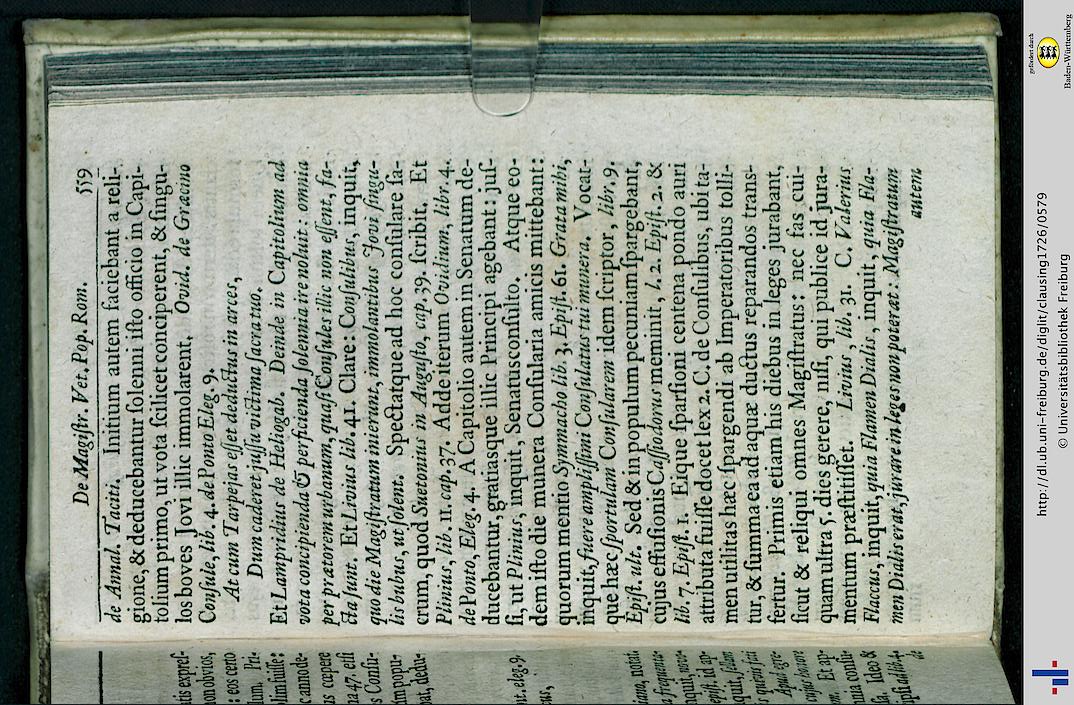 De Magistr. Vet. Pop. Rom. 559
de Annal. Taciti. Initium autem faciebant a reli-
gione, & deducebantur solenni isto officio in Capi-
tolium primo, ut vota scilicet conciperent, & singu-
los boves Jovi illic immolarent, Ovid. de Græcino
Consule, lib. 4. de Ponto Eleg. 9.
At cum Tarpejas esset deductus in arces,
Dum caderet jussu victima sacra tuo.
Et Lampridius de Heliogab. Deinde in Capitolium ad
vota concipienda & perficienda solemnia ire noluit: omnia
per prætorem urbanum, quasi Consules illic non essent, fa-
cta sunt. Et Livius lib. 41. Clare: Consulibus, inquit,
quo die Magistratum inierunt, immolantibus Jovi singu-
lis bubus, ut solent. Spectatque ad hoc consulare sa-
crum, quod Suetonius in Augusto, cap. 39. scribit. Et
Plinius, lib. 11. cap. 37. Adde iterum Ovidium, libr. 4.
de Ponto, Eleg. 4. A Capitolio autem in Senatum de-
ducebantur, gratiasque illic Principi agebant: jus-
si, ut Plinius, inquit, Senatusconsulto. Atque eo-
dem isto die munera Consularia amicis mittebant:
quorum mentio Symmacho lib. 3. Epist. 61. Grata mihi,
inquit, fuere amplissimi Consulatus tui munera, Vocat-
que hæc sportulam Consularem idem scriptor, libr. 9.
Epist. ult. Sed & in populum pecuniam spargebant,
cujus effusionis Cassiodorus meminit, l. 2. Epist. 2. &
lib. 7. Epist. 1. Eique sparsioni centena pondo auri
attributa fuisse docet lex 2. C. de Consulibus, ubi ta-
men utilitas hæc spargendi ab Imperatoribus tolli-
tur, & summa ea ad aquæ ductus reparandos trans-
fertur. Primis etiam his diebus in leges jurabant,
sicut & reliqui omnes Magistratus: nec fas cui-
quam ultra 5. dies gerere, nisi, qui publice id jura-
mentum præstitisset. Livius, lib. 31. C. Valerius
Flaccus, inquit, quia Flamen Dialis, inquit, quia Fla-
men Dialis erat, jurare in leges non poterat: Magistratum
autem
http://dl.ub.uni-freiburg.de/diglit/clausing1726/0579
© Universitätsbibliothek Freiburg
gefördert durch
Baden-Württemberg